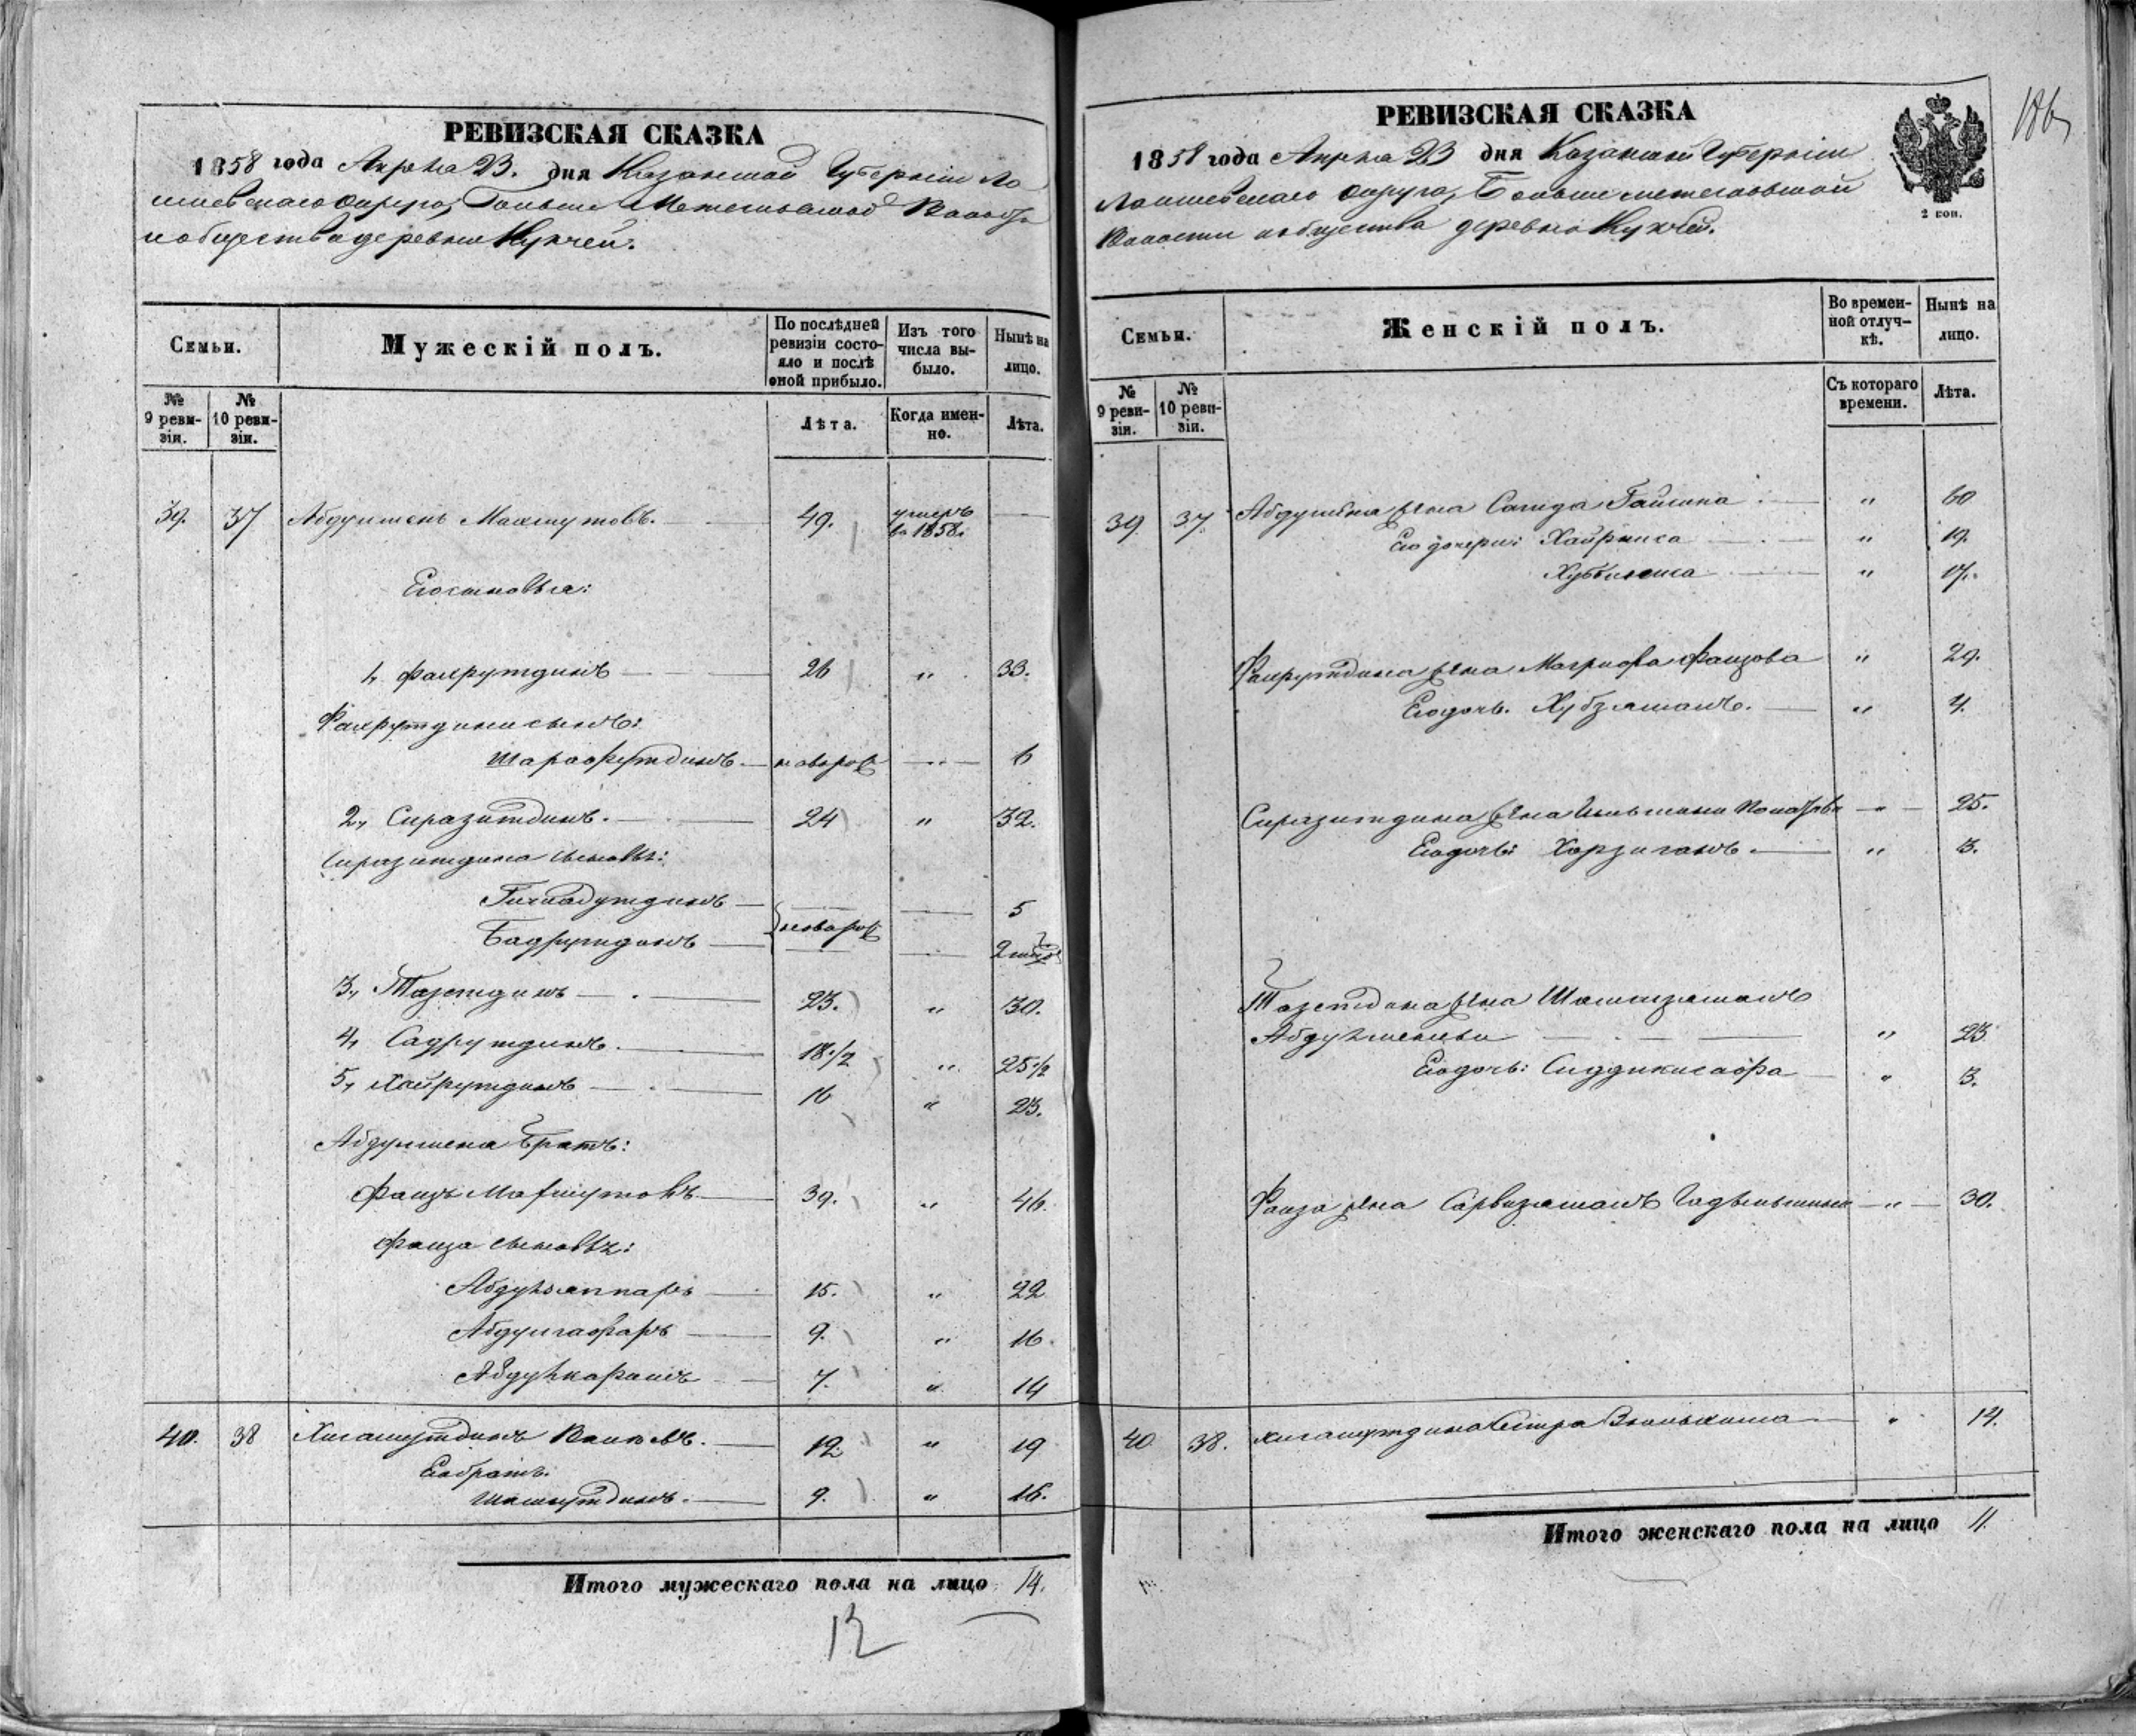 РЕВИЗСКАЯ СКАЗКА
1858 года Апреля 23. дня Казанской Губерніи Ла
ишевскаго округа, Больше Метескинской Волости
и общества деревни Кукчей.
Семьи.
Мужескій полъ.
По послѣдней ревизіи состояло и послѣ оной прибыло.
Изъ того числа выбыло.
Нынѣ на лицо.
№ 9 ревизіи.
№ 10 ревизіи.
Лѣта.
Когда именно.
Лѣта.
39. 37 Абдулменъ Махмутовъ. 49. умеръ въ 1858.
Его сыновья:
1, Фахрутдинъ 26 " 33.
Фахрутдина сынъ:
Шарафутдинъ новорож 6
2, Сиразитдинъ. 24 " 32.
Сиразитдина сыновья:
5
Бадрутдинъ новорож 2
3, Тазетдинъ 23. " 30.
4, Садрутдинъ. 18 1/2 " 25 1/2
5, Хайрутдинъ 16 " 23.
Абдулмена братъ:
Фаизъ Махмутовъ 39. " 46.
Фаиза сыновья:
Абдулзаппаръ 15. " 22
Абдулгафаръ 9. " 16
Абдулкаримъ 7. " 14
40. 38 Хисамутдинъ Ваиповъ. 12 " 19
Его братъ.
Шамсутдинъ. 9. " 16.
Итого мужескаго пола на лицо 14.
12
РЕВИЗСКАЯ СКАЗКА
186
1858 года Апреля 23 дня Казанской Губерніи
Лаишевскаго округа, Больше метескинской
Волости и общества деревни Кукчей.
2 коп.
Семьи.
Женскій полъ.
Во временной отлучкѣ.
Нынѣ на лицо.
№ 9 ревизіи.
№ 10 ревизіи.
Съ котораго времени.
Лѣта.
39 37. Абдулмена жена Сагида Гайсина " 60
Его дочери: Хайрниса " 19.
" 17.
Фахрутдина жена Магрифа Фаизова " 29.
Его дочь. Хубзяманъ. " 4.
Сиразитдина жена " 25.
Его дочь: " 3.
Тазетдина жена Шамсизяманъ
Абдулменева " 23.
Его дочь: Сиддикисафа " 3.
Фаиза жена Сарвизяманъ " 30.
40 38. Хисамутдина сестра " 14.
Итого женскаго пола на лицо 11.